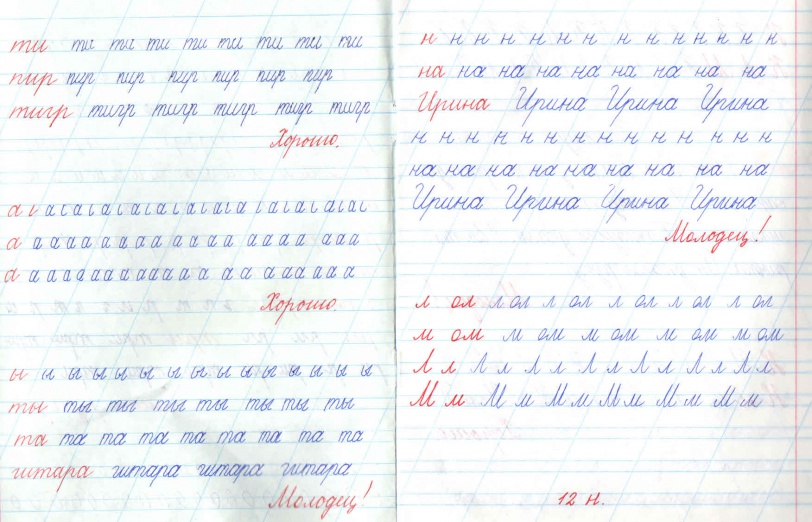 ти ти ти ти ти ти ти ти ти
пир пир пир пир пир пир пир
тигр тигр тигр тигр тигр тигр
Хорошо.
а ι а ι а ι а ι а ι а ι а ι а ι а ι а ι а ι а ι
а а а а а а а а а а а а а а а а а а а
а а а а а а а а а а а а а а а а а а а а
Хорошо.
ы ы ы ы ы ы ы ы ы ы ы ы ы ы ы
ты ты ты ты ты ты ты ты
та та та та та та та та та
гитара гитара гитара гитара
Молодец!
н н н н н н н н н н н н н н
на на на на на на на на на
Ирина Ирина Ирина Ирина
н н н н н н н н н н н н н н
на на на на на на на на на
Ирина Ирина Ирина Ирина
Молодец!
л ол л ол л ол л ол л ол л ол
м ом м ом м ом м ом м ом
Л л Л л Л л Л л Л л Л л Л л
М м М м М м М м М м М м
12 н.